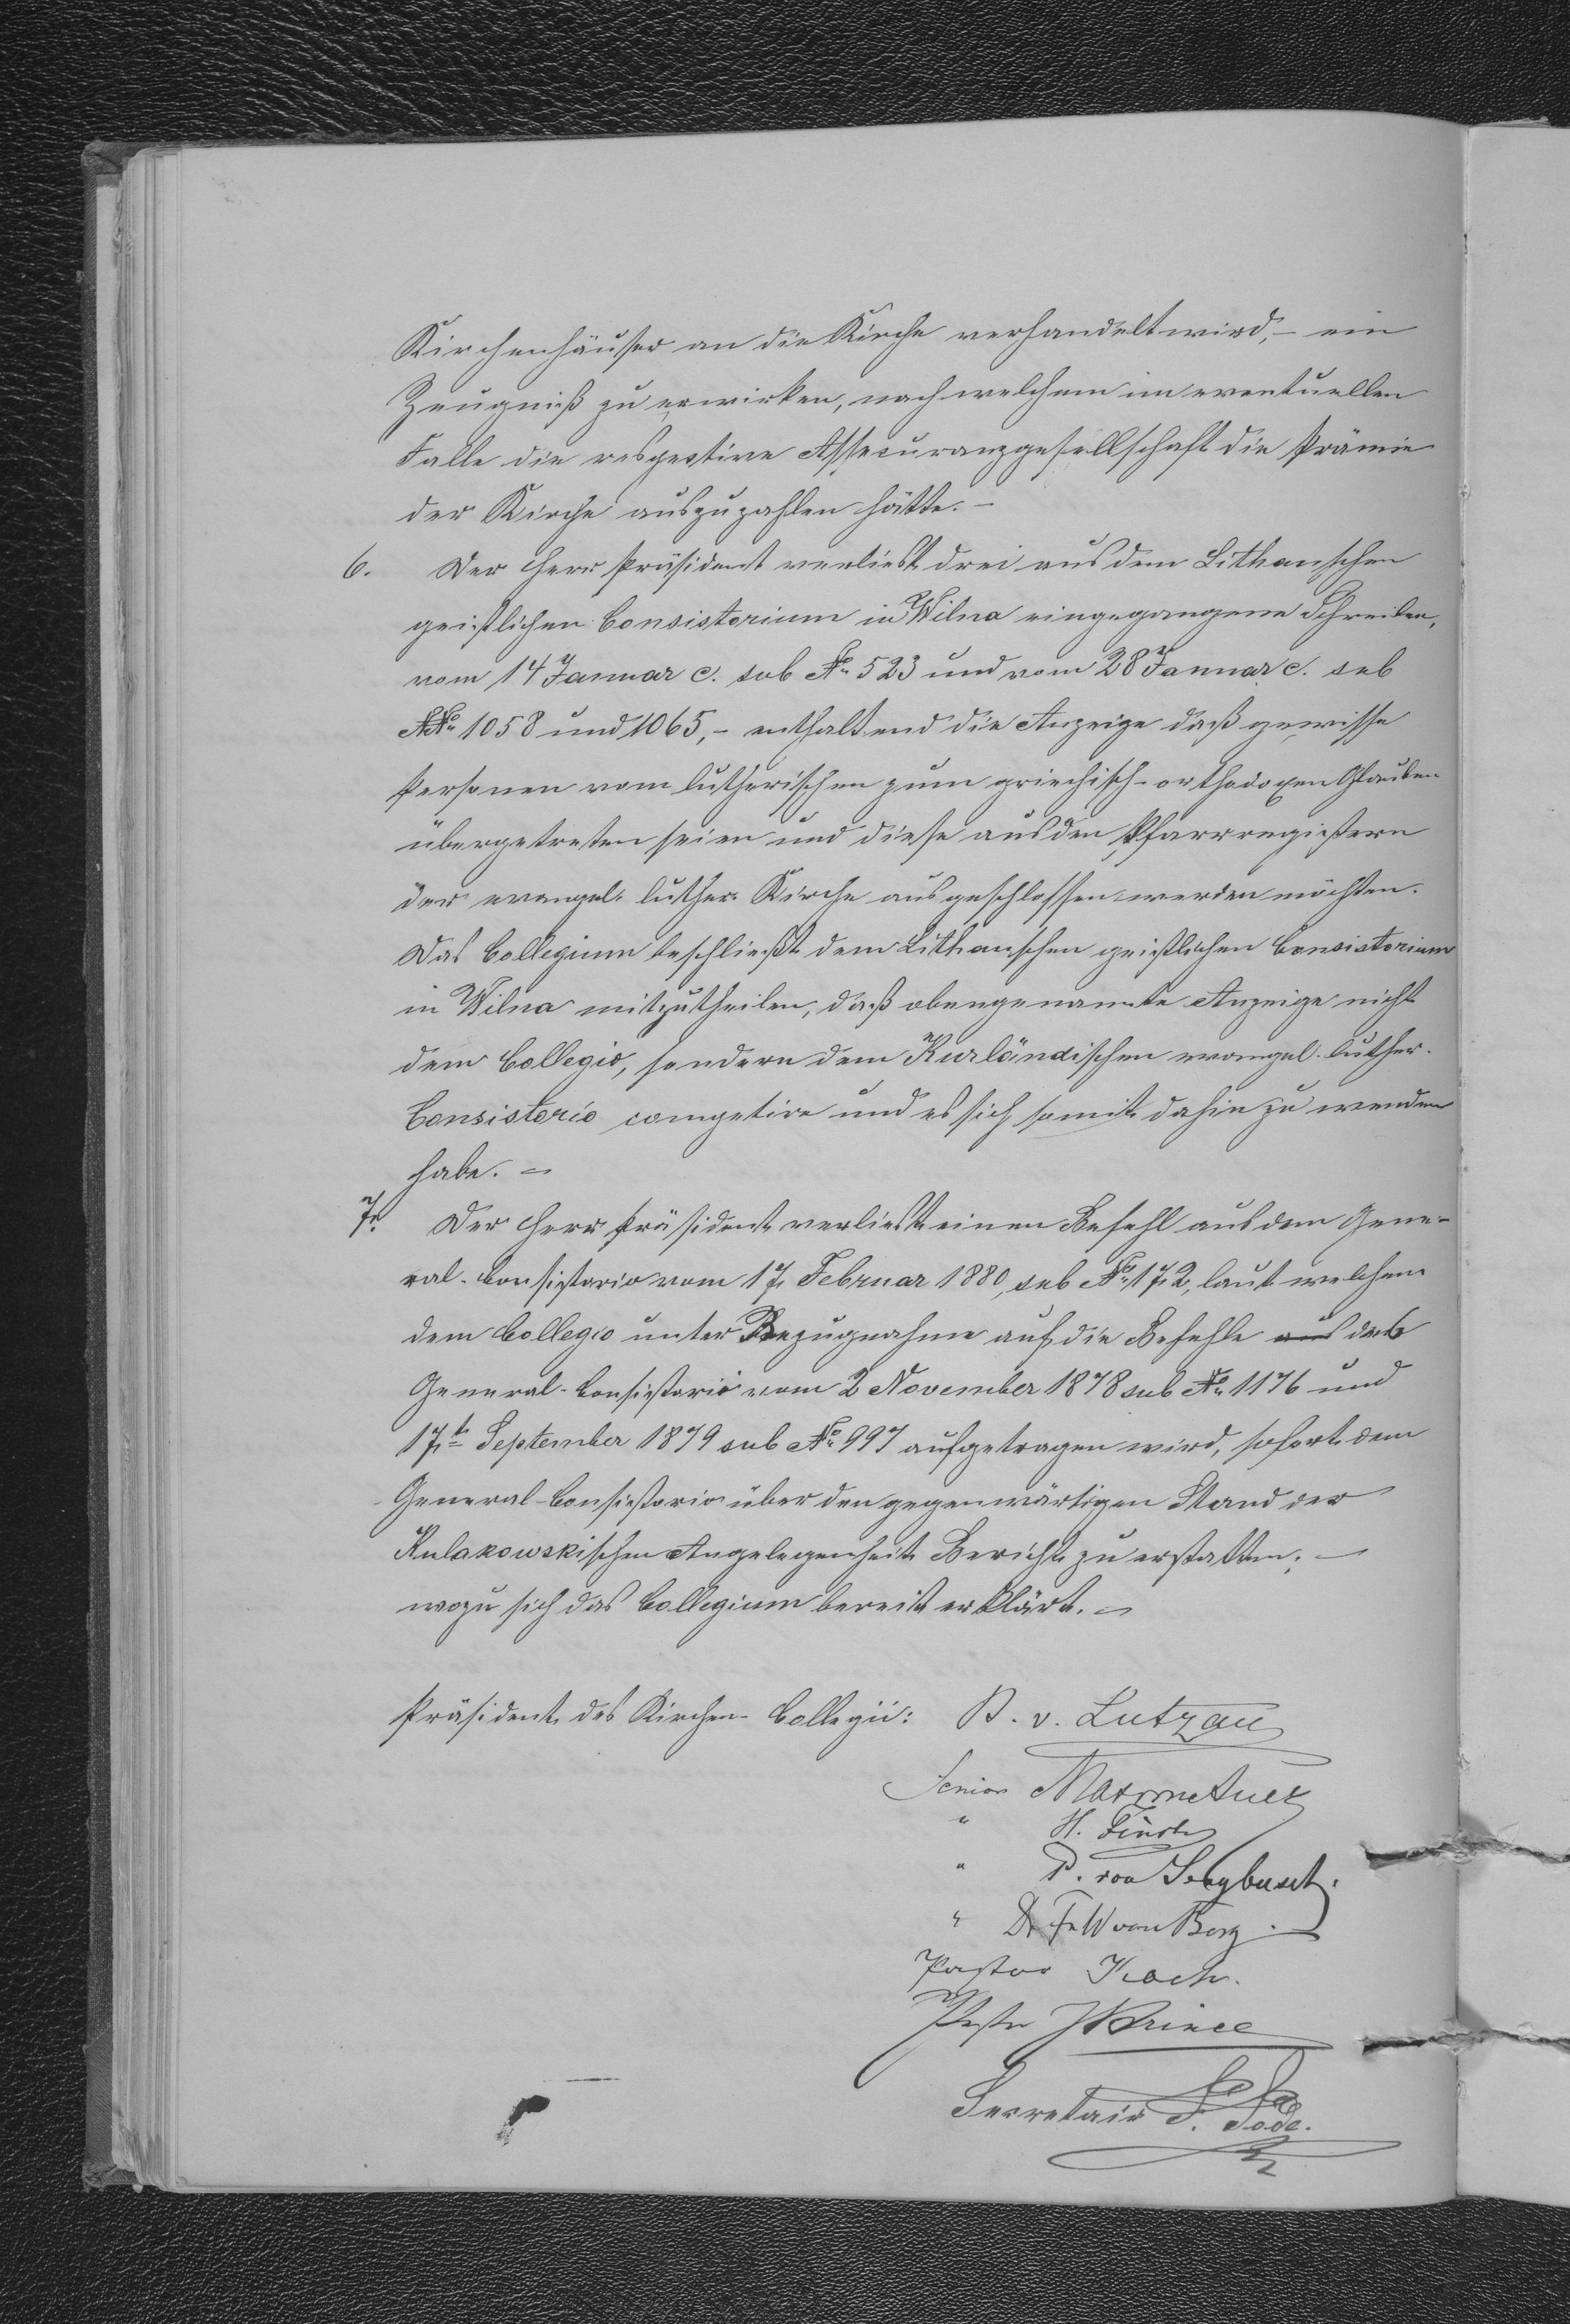 Kirchenhäuser an die Kirche verhandelt wird, – ein
Zeugniß zu erwirken, nach welchem im eventuellen
Falle die respective Assecuranzgesellschaft die Prämie
der Kirche auszuzahlen hätte. –
6. Der Herr Präsident verliest drei aus dem Lithauschen
geistlichen Consistorium in Wilna eingegangene Schreiben,
vom 14 Januar c. sub № 523 und vom 28 Januar c. sub
№№ 1058 und 1065, – enthaltend die Anzeige daß gewisse
Personen vom lutherischen zum griechisch-orthodoxen Glauben
übergetreten seien und diese aus den Pfarrregistern
der evangel. luther. Kirche ausgeschlossen werden möchten.
Das Collegium beschließt dem Lithauschen geistlichen Consistorium
in Wilna mitzutheilen, daß obengenannte Anzeige nicht
dem Collegio, sondern dem Kurländischen evangel. luther.
Consistorio competire und es sich somit dahin zu wenden
habe. –
7. Der Herr Präsident verliest einen Befehl aus dem Gene-
ral-Consistorio vom 17 Februar 1880, sub № 172, laut welchem
dem Collegio unter Bezugnahme auf die Befehle aus des
General-Consistorii vom 2 November 1878 sub № 1176 und
17t September 1879 sub № 997 aufgetragen wird, sofort dem
General-Consistorio über den gegenwärtigen Stand der
Kulakowskischen Angelegenheit Bericht zu erstatten; –
wozu sich das Collegium bereit erklärt. –
Präsident des Kirchen-Collegii: B. v. Lutzau
Senior
" H.
" P. von Seybusch.
" Dr Fr W von Berg.
Pastor Koch.
Pastor
Secretair F. Bode.